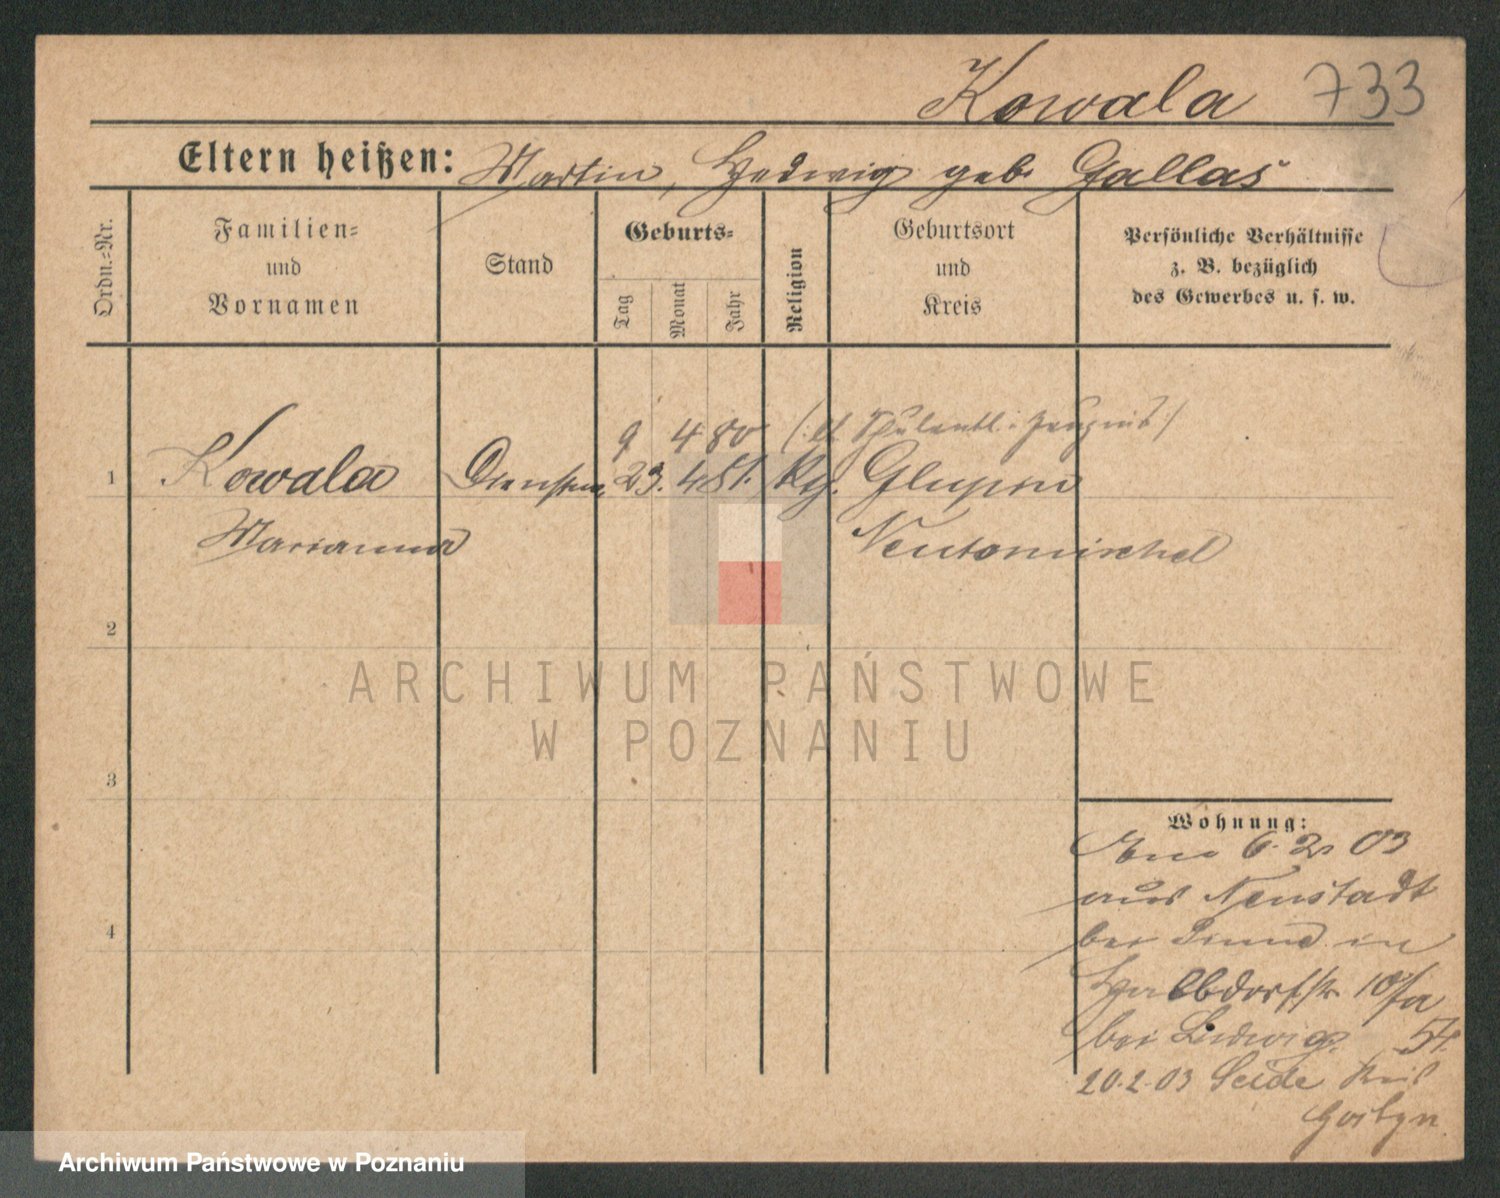 Kowala 733
Eltern heißen: Martin, Hedwig geb. Gallas
Ordn.-Nr.
Familien-
und
Vornamen
Stand
Geburts-
Tag
Monat
Jahr
Religion
Geburtsort
und
Kreis
Persönliche Verhältnisse
z. B. bezüglich
des Gewerbes u. s. w.
9 4 80 (: lt. Zeugnis :)
1 Kowala 23. 4. 81. Glupon
Marianna Neutomischel
2
3
4
Wohnung:
6. 2. 03
aus Neustadt
bei Pinne in
Halbdorfstr. 10/a
bei Ludwig. St.
20.2.03 Kreis
Gostyn.
ARCHIWUM PAŃSTWOWE
W POZNANIU
Archiwum Państwowe w Poznaniu